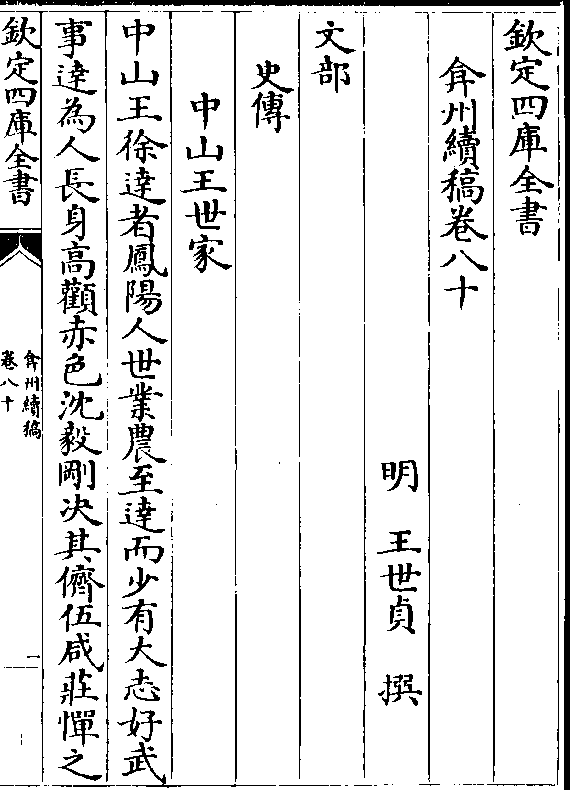 欽定四庫全書
弇州續稿卷八十
明　王世貞　撰
文部
史傳
中山王世家
中山王徐達者鳳陽人世業農至達而少有大志好武
事達為人長身高顴赤色沈毅剛决其儕伍咸莊憚之
欽定四庫全書
弇州續稿
卷八十
一